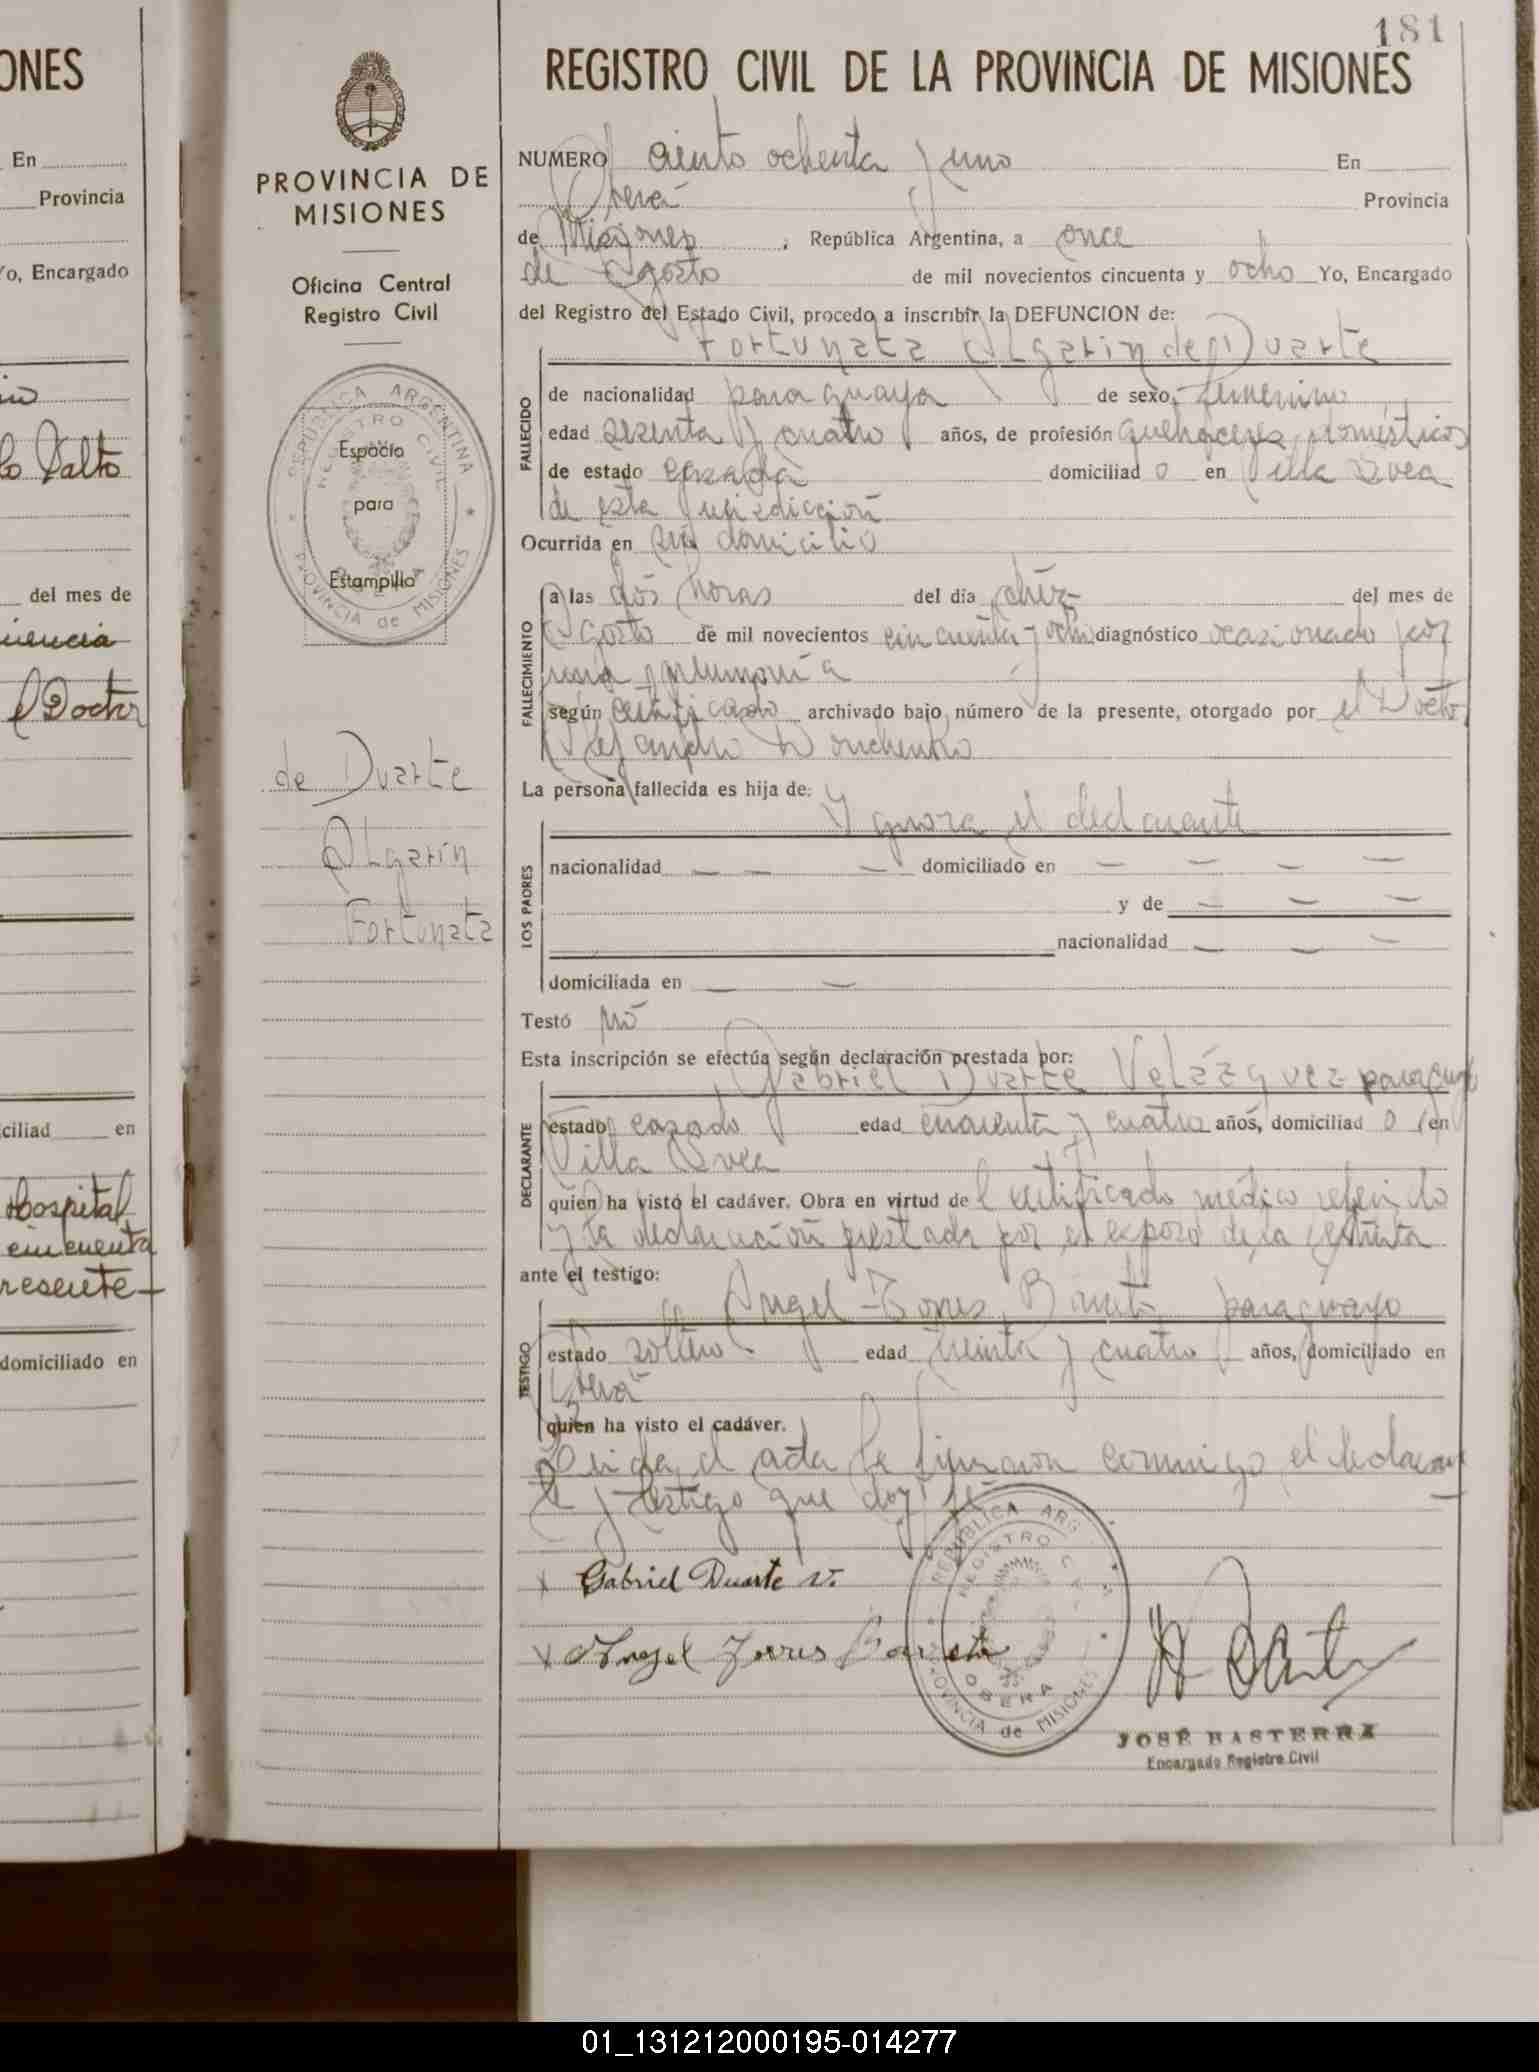 ONES
En
Provincia
Yo, Encargado
Salto
del mes de
el Doctor
ciliad en
Hospital
cincuenta
presente
domiciliado en
PROVINCIA DE
MISIONES
Oficina Central
Registro Civil
REPUBLICA ARGENTINA
REGISTRO CIVIL
PROVINCIA de MISIONES
Espacio
para
Estampilla
de Duarte
Algarín
Fortunata
181
REGISTRO CIVIL DE LA PROVINCIA DE MISIONES
NUMERO ciento ochenta y uno En
Oberá Provincia
de Misiones, República Argentina, a once
de Agosto de mil novecientos cincuenta y ocho Yo, Encargado
del Registro del Estado Civil, procedo a inscribir la DEFUNCION de:
Fortunata Algarin de Duarte
FALLECIDO
de nacionalidad paraguaya de sexo femenino
edad sezenta y cuatro años, de profesión quehaceres domésticos
de estado casada domiciliad o en Villa Svea
de esta jurisdicción
Ocurrida en su domicilio
FALLECIMIENTO
a las dos horas del día diéz del mes de
Agosto de mil novecientos cincuenta y ocho diagnóstico ocasionado por
una neumonía
según certificado archivado bajo número de la presente, otorgado por el Doctor
Alejandro
La persona fallecida es hija de:
LOS PADRES
Ygnora el declarante
nacionalidad — — — domiciliado en — — — —
y de — — —
nacionalidad — — —
domiciliada en — —
Testó no
Esta inscripción se efectúa según declaración prestada por:
DECLARANTE
Gabriel Duarte Velázquez paraguayo
estado casado edad cuarenta y cuatro años, domiciliad o en
Villa Svea
quien ha visto el cadáver. Obra en virtud de l certificado médico referido
y la declaración prestada por el esposo de la extinta
ante el testigo:
TESTIGO
Angel Torres Barreto paraguayo
estado soltero edad treinta y cuatro años, domiciliado en
Oberá
quien ha visto el cadáver.
Leida el acta la firmaron conmigo el declaran
te y testigo que doy fe
x Gabriel Duarte V.
x Angel Torres Barreto
REPUBLICA ARG
REGISTRO C
OBERA
PROVINCIA de MISIONES
JOSÉ BASTERRA
Encargado Registro Civil
01_131212000195-014277